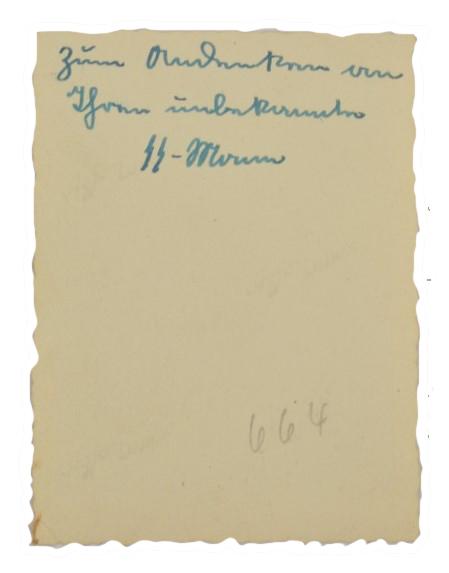 Zum Andenken an
Ihren unbekannten
ϟϟ-Mann
664